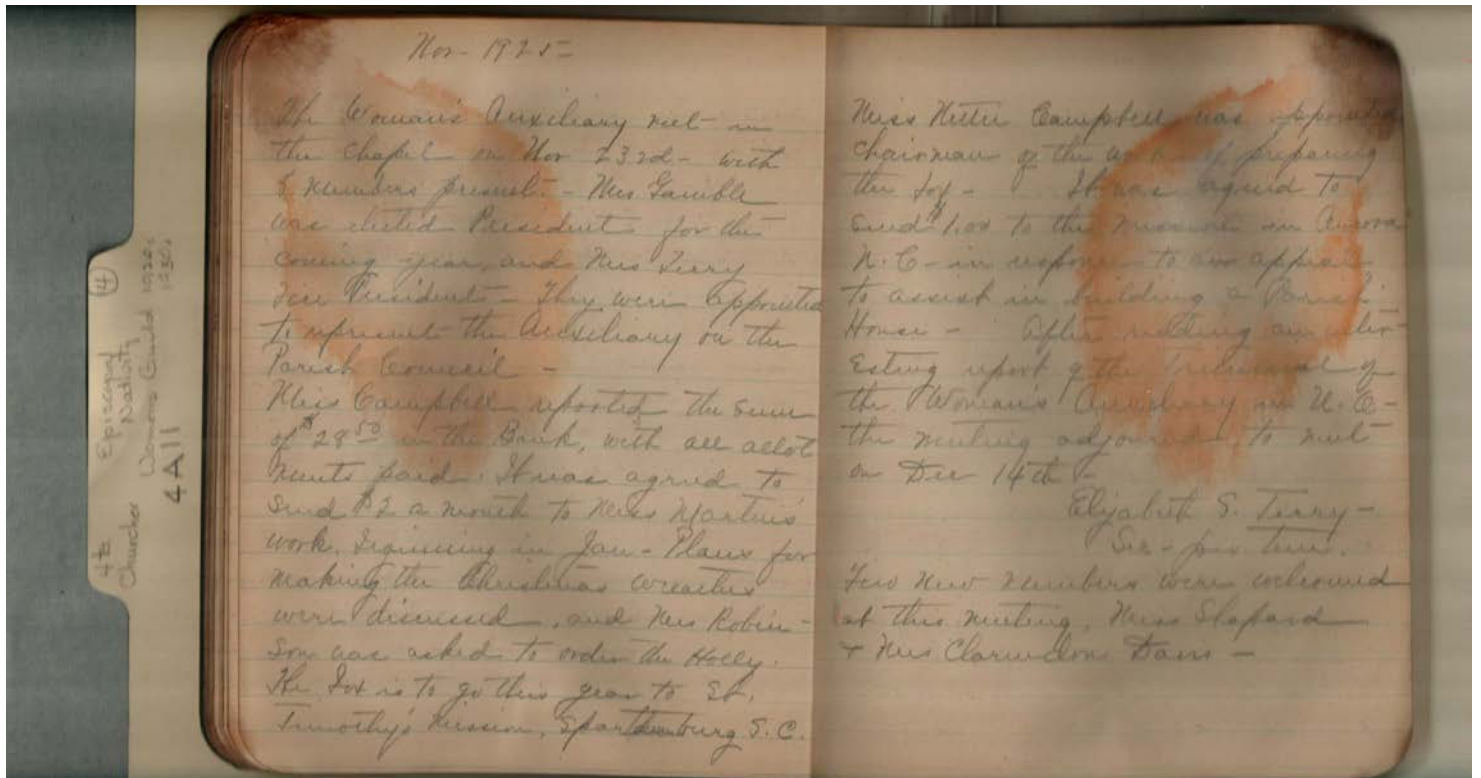 Nov - 1925 -
The Woman's Auxiliary met in
the Chapel on Nov 23rd - with
8 members present. - Mrs. Gamble
was elected President for the
coming year, and Mrs Terry
Vice President - They were appointed
to represent the Auxiliary on the
Parish Council -
Miss Campbell reported the sum
of $28 50 in the Bank, with all allot
ments paid. It was agreed to
send $2 a month to Miss Martin's
work, beginning in Jan - Plans for
making the Christmas wreaths
were discussed, and Mrs Robin-
son was asked to order the Holly.
The box is to go this year to St.
Timothy's Mission, Spartanburg S.C.
Miss Campbell was appointed
Chairman of the work of preparing
the box - It was agreed to
send $1.00 to the mission in Aurora
N.C - in response to an appeal
to assist in building a Parish
House - After reading an inter-
esting report of the Triennial of
the Woman's Auxiliary in N.O -
the meeting adjourned to meet
on Dec 14th -
Elizabeth S. Terry -
Sec - pro tem.
Two new members were welcomed
at this meeting, Miss Shepard
+ Mrs Davis -
4th
Churches
Episcopal
Nativity
④
Womans Guild 1920s
1930s
4A11